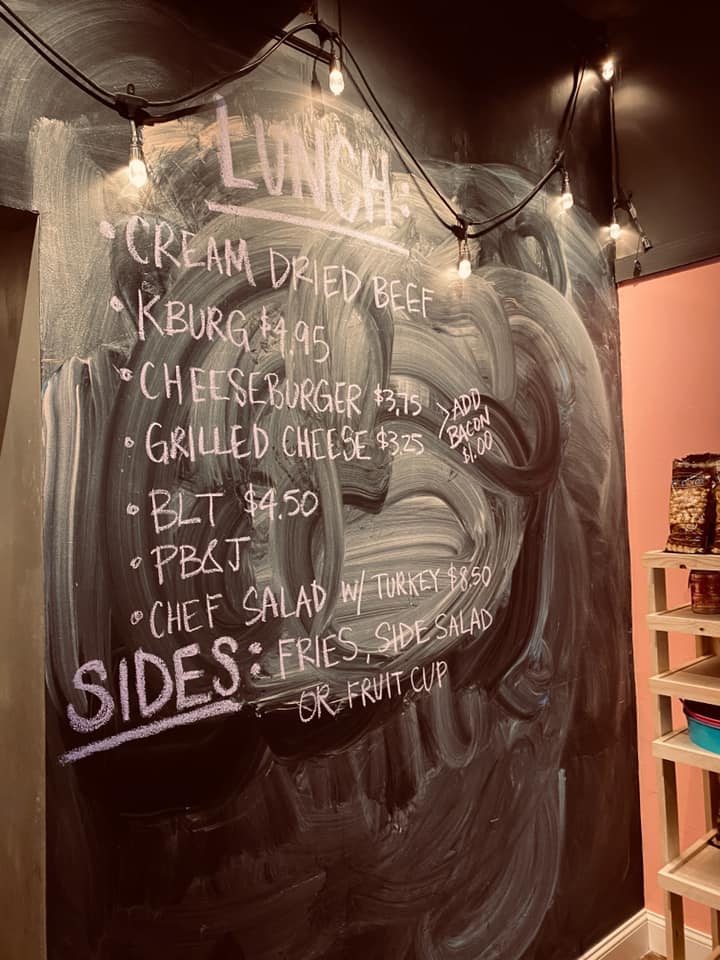 LUNCH:
• CREAM DRIED BEEF
• KBURG $4.95
• CHEESEBURGER $3.75
• GRILLED CHEESE $3.25
> ADD
BACON
$1.00
• BLT $4.50
• PB&J
• CHEF SALAD W/ TURKEY $8.50
SIDES: FRIES, SIDE SALAD
OR FRUIT CUP